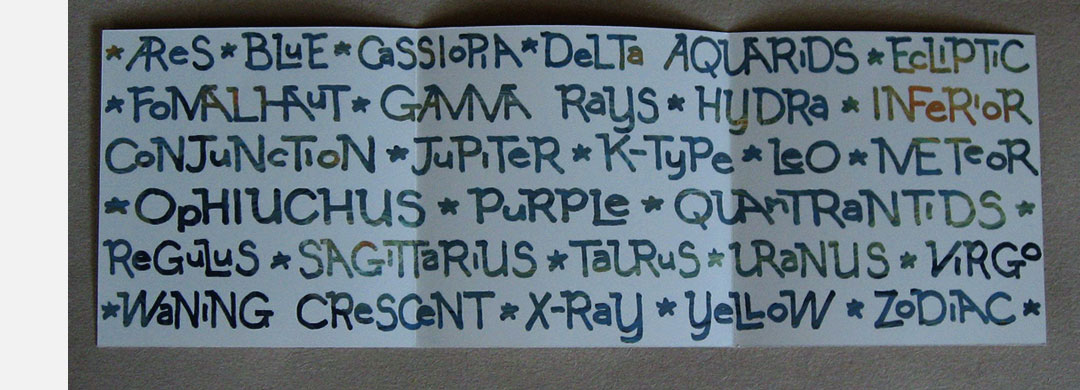 * AReS * BLuE * CaSSIoPIA * DeLTa AQUARiDS * EcLIPTiC
* FoMALHAuT * GAMMA RaYS * HYDRa * INFeRioR
CoNJuNcTIoN * JuPiTeR * K-TyPe * LeO * METeoR
* OpHIUCHUS * PuRPLe * QUAnTRaNTiDS *
ReGuLuS * SAGITTaRiUS * TaURuS * URaNUS * ViRGo
* WaNiNG CReSCeNT * X-RaY * YeLLoW * ZoDiAC *